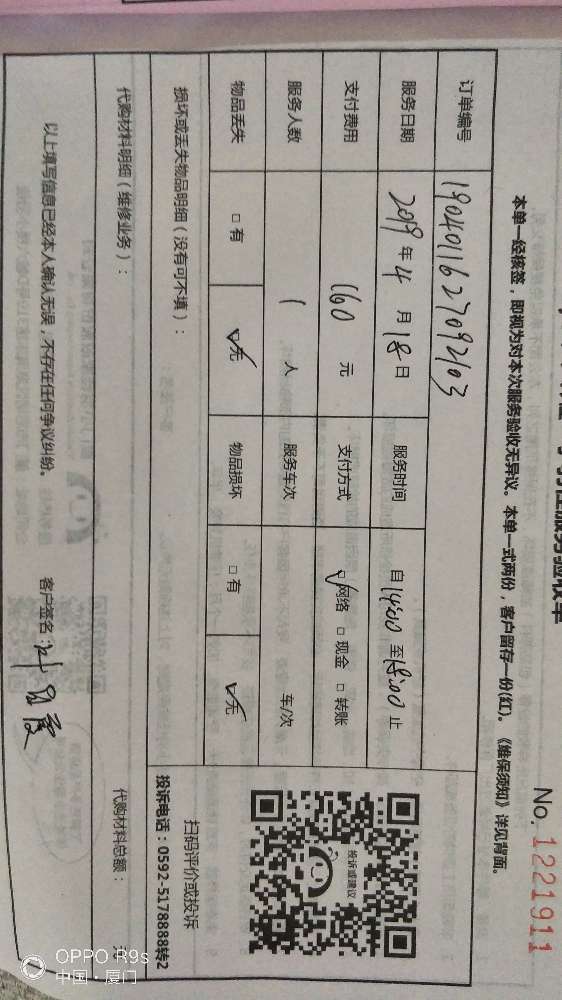 No. 1221911
本单一经核签，即视为对本次服务验收无异议。本单一式两份，客户留存一份(红)。《维保须知》详见背面。
订单编号 190401162709203
服务日期 2019 年 4 月 18 日 服务时间 自 14:00 至 18:00 止
支付费用 160 元 支付方式 ☑ 网络 □ 现金 □ 转账
服务人数 1 人 服务车次 车/次
物品丢失 □ 有 ☑ 无 物品损坏 □ 有 ☑ 无
投诉或建议
扫码评价或投诉
投诉电话：0592-5178888转2
损坏或丢失物品明细（没有可不填）：
代购材料明细（维修业务）： 代购材料总额： 元
以上填写信息已经本人确认无误，不存在任何争议纠纷。 客户签名：
OPPO R9s
中国·厦门